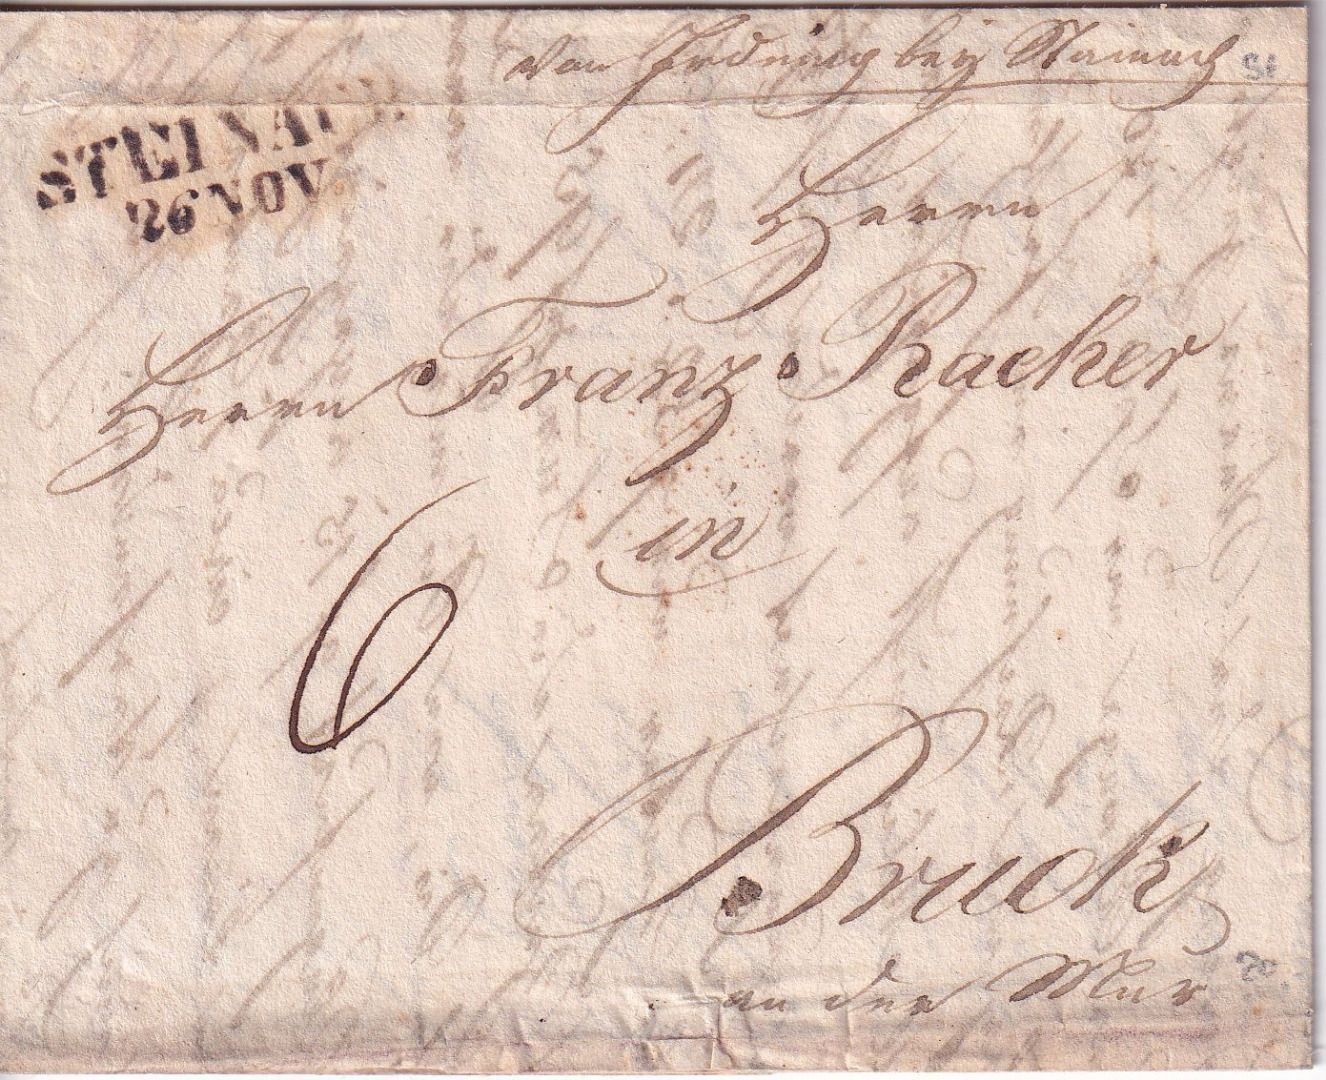 von Irdning bey Stainach
STEINACH
26 NOV
Herrn
Herrn Franz Racher
in
6
Bruck
an der Mur